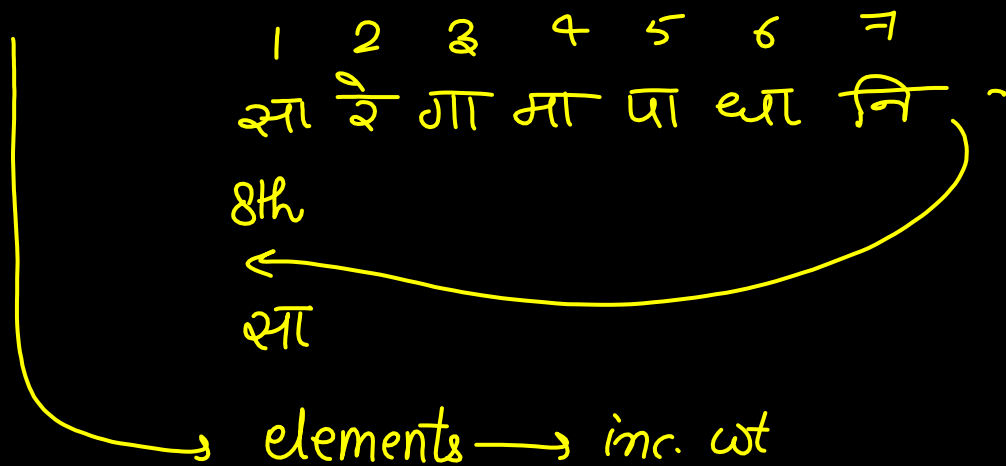 1 2 3 4 5 6 7
सा रे गा मा पा धा नि
8th
←
सा
→ elements → inc. wt